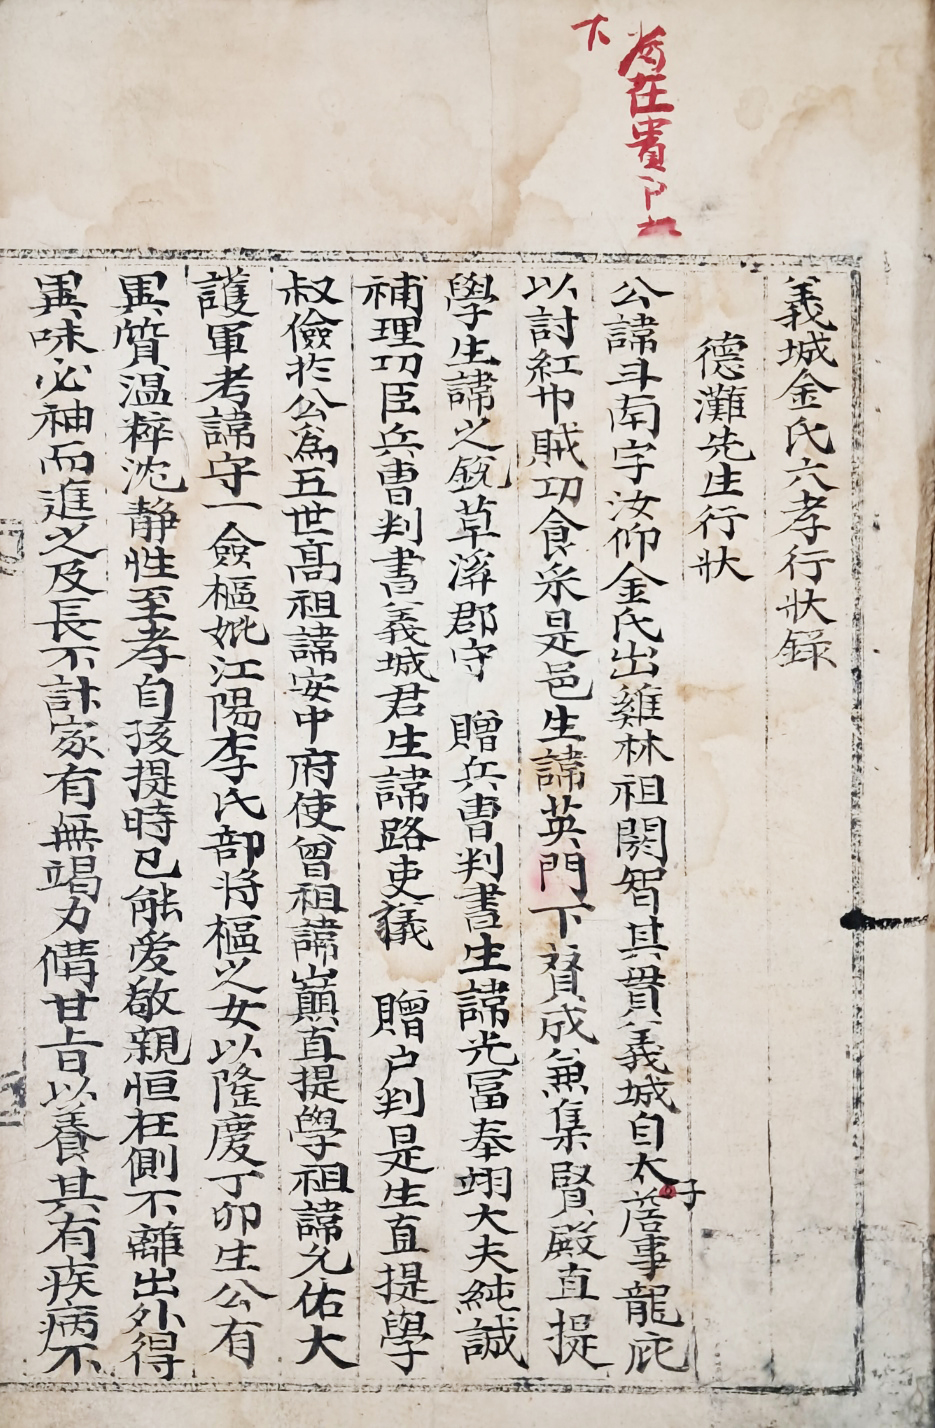 義城金氏六孝行狀錄
德灘先生行狀
公諱斗南字汝仰金氏出雞林祖閼智其貫義城自太子詹事龍庇
以討紅巾賊功食采是邑生諱英門下贊成兼集賢殿直提
學生諱之銳草溪郡守 贈兵曹判書生諱光富奉翊大夫純誠
補理功臣兵曹判書義城君生諱路吏議 贈户判是生直提學
叔儉於公爲五世髙祖諱安中府使曾祖諱巔直提學祖諱允佑大
護軍考諱守一僉樞妣江陽李氏部将樞之女以隆慶丁卯生公有
異質温粹沈静性至孝自孩提時已能爱敬親恒在側不離出外得
異味必袖而進之及長不計家有無竭力備甘旨以養其有疾病不
在貴
下